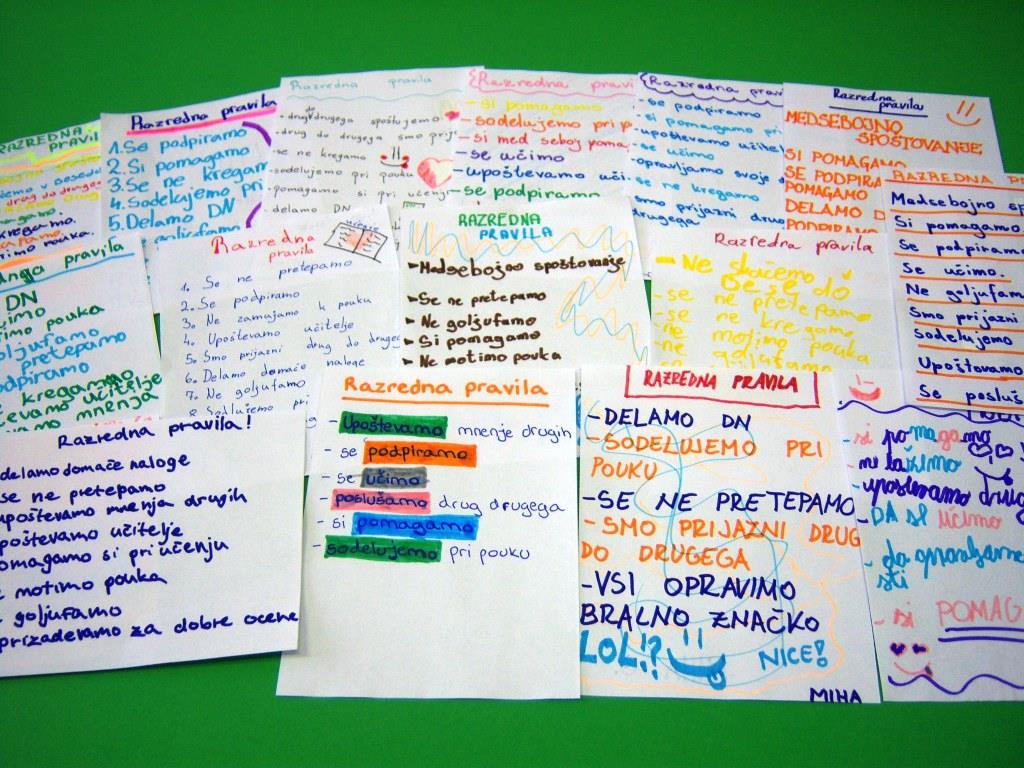 RAZREDNA
PRAVILA
Razredna pravila
1. Se podpiramo
2. Si pomagamo
3. Se ne kregamo
4. Sodelujemo pri
5. Delamo DN
Razredna pravila
drug drugega spoštujemo
- drug do drugega smo prij
- se ne kregamo
- sodelujemo pri pouku
- pomagamo si pri učenju
- delamo DN
Razredna pravi
- si pomagamo
- sodelujemo pri p
- si med seboj poma
- se učimo
- upoštevamo uči
- se podpiramo
Razredna prav
- se podpiramo
- si pomagamo pri
- upoštevamo učitel
- se učimo
- opravljamo svoje d
- se ne kregamo
- smo prijazni dru
drugega
Razredna
pravila
MEDSEBOJNO
SPOŠTOVANJE
SI POMAGAMO
SE PODPIRA
POMAGAMO
DELAMO D
RAZREDNA PR
Medsebojno sp
Si pomagamo
Se podpiramo
Se učimo.
Ne goljufam
Smo prijazni
Sodelujemo
Upoštevamo
Se posluš
pravila
DN
pouka
pretepamo
dpiramo
kregammo
učitelje
mnenja
Razredna
pravila
1. Se ne pretepamo
2. Se podpiramo
3. Ne zamujamo k pouku
4. Upoštevamo učitelje
5. Smo prijazni drug do drugeg
6. Delamo domače naloge
7. Ne goljufamo
8. Sodelujemo pri
RAZREDNA
PRAVILA
- Medsebojno spoštovanje
- Se ne pretepamo
- Ne goljufamo
- Si pomagamo
- Ne motimo pouka
Razredna pravila
- Ne skačemo
- se ne pretepamo
- se ne kregamo
- ne motimo pouka
Razredna pravila!
delamo domače naloge
se ne pretepamo
upoštevamo mnenja drugih
poštevamo učitelje
omagamo si pri učenju
motimo pouka
goljufamo
prizadevamo za dobre ocene
Razredna pravila
- Upoštevamo mnenje drugih
- se podpiramo
- se učimo
- poslušamo drug drugega
- si pomagamo
- sodelujemo pri pouku
RAZREDNA PRAVILA
- DELAMO DN
- SODELUJEMO PRI
POUKU
- SE NE PRETEPAMO
- SMO PRIJAZNI DRUG
DO DRUGEGA
- VSI OPRAVIMO
BRALNO ZNAČKO
LOL!? NICE!
MIHA
- si pomagamo
ne lažimo
- upoštevamo drug
- DA SE učimo
- da opravljamo
- si POMAG